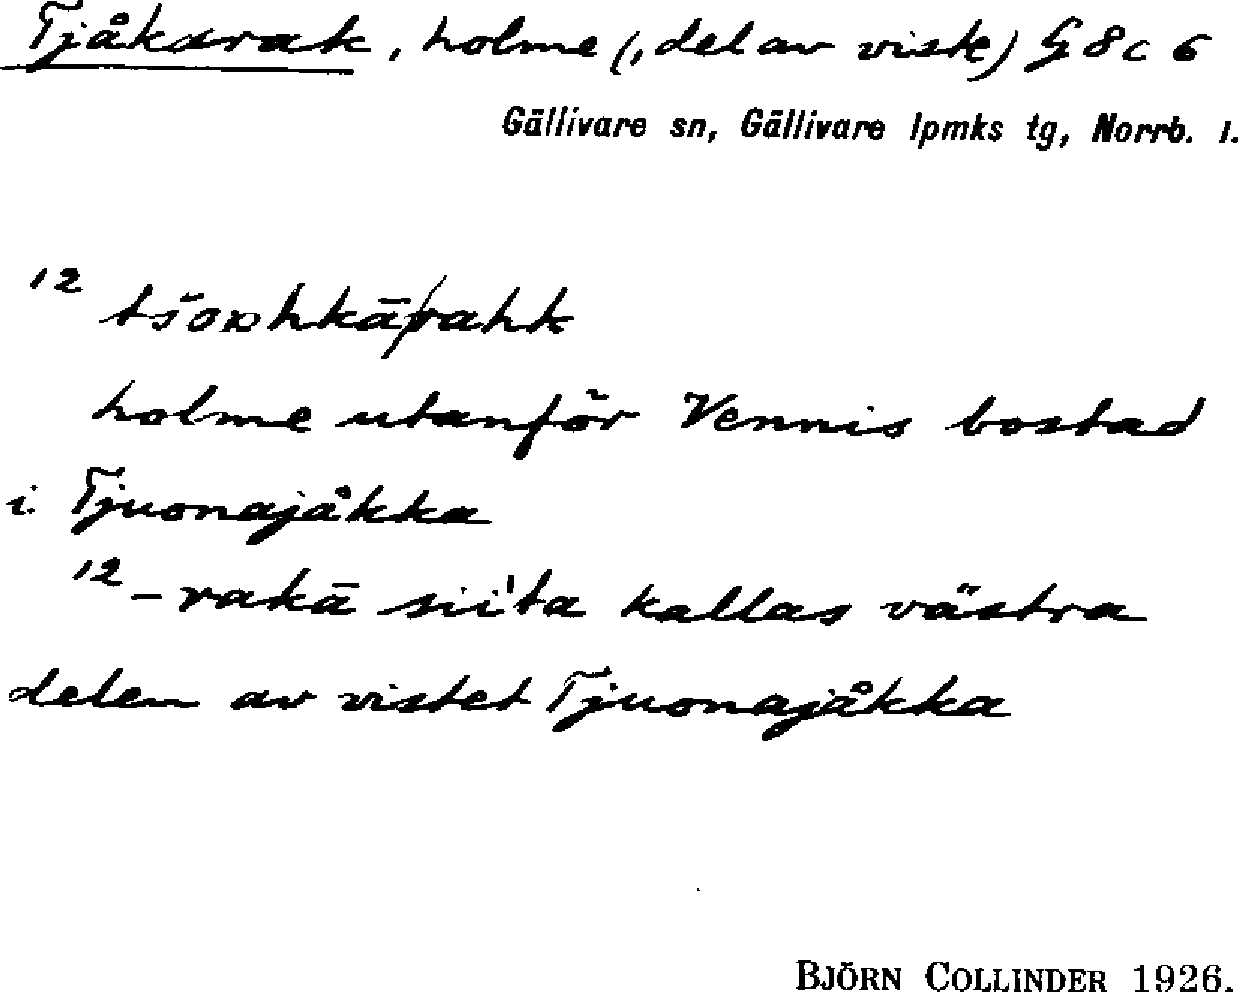 Tjåkarak, holme (, del av viste) G 8 c 6
Gällivare sn, Gällivare lpmks tg, Norrb. l.
12 tšoɒhkā/rahk
holme utanför Vennis bostad
i Tjuonajåkka
12 -rakā siiˈta kallas västra
delen av vistet Tjuonajåkka
BJÖRN COLLINDER 1926.